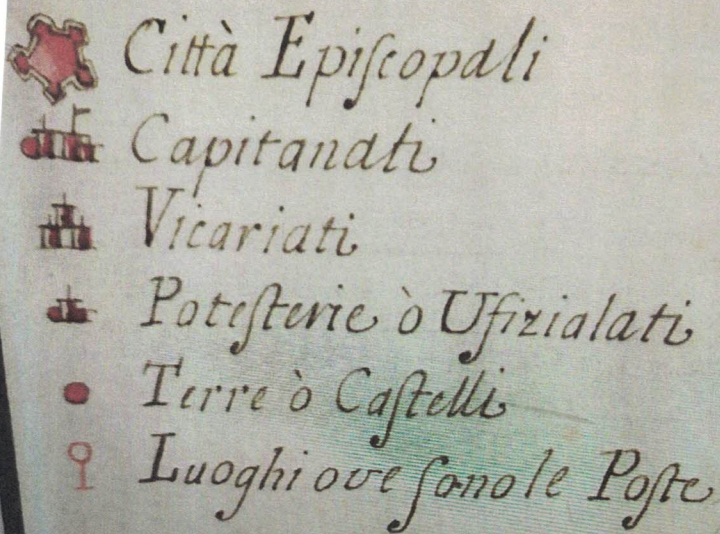 Città Epiſcopali
Capitanati
Vicariati
Poteſterie ò Ufizialati
Terre ò Caſtelli
Luoghi ove ſono le Poſte